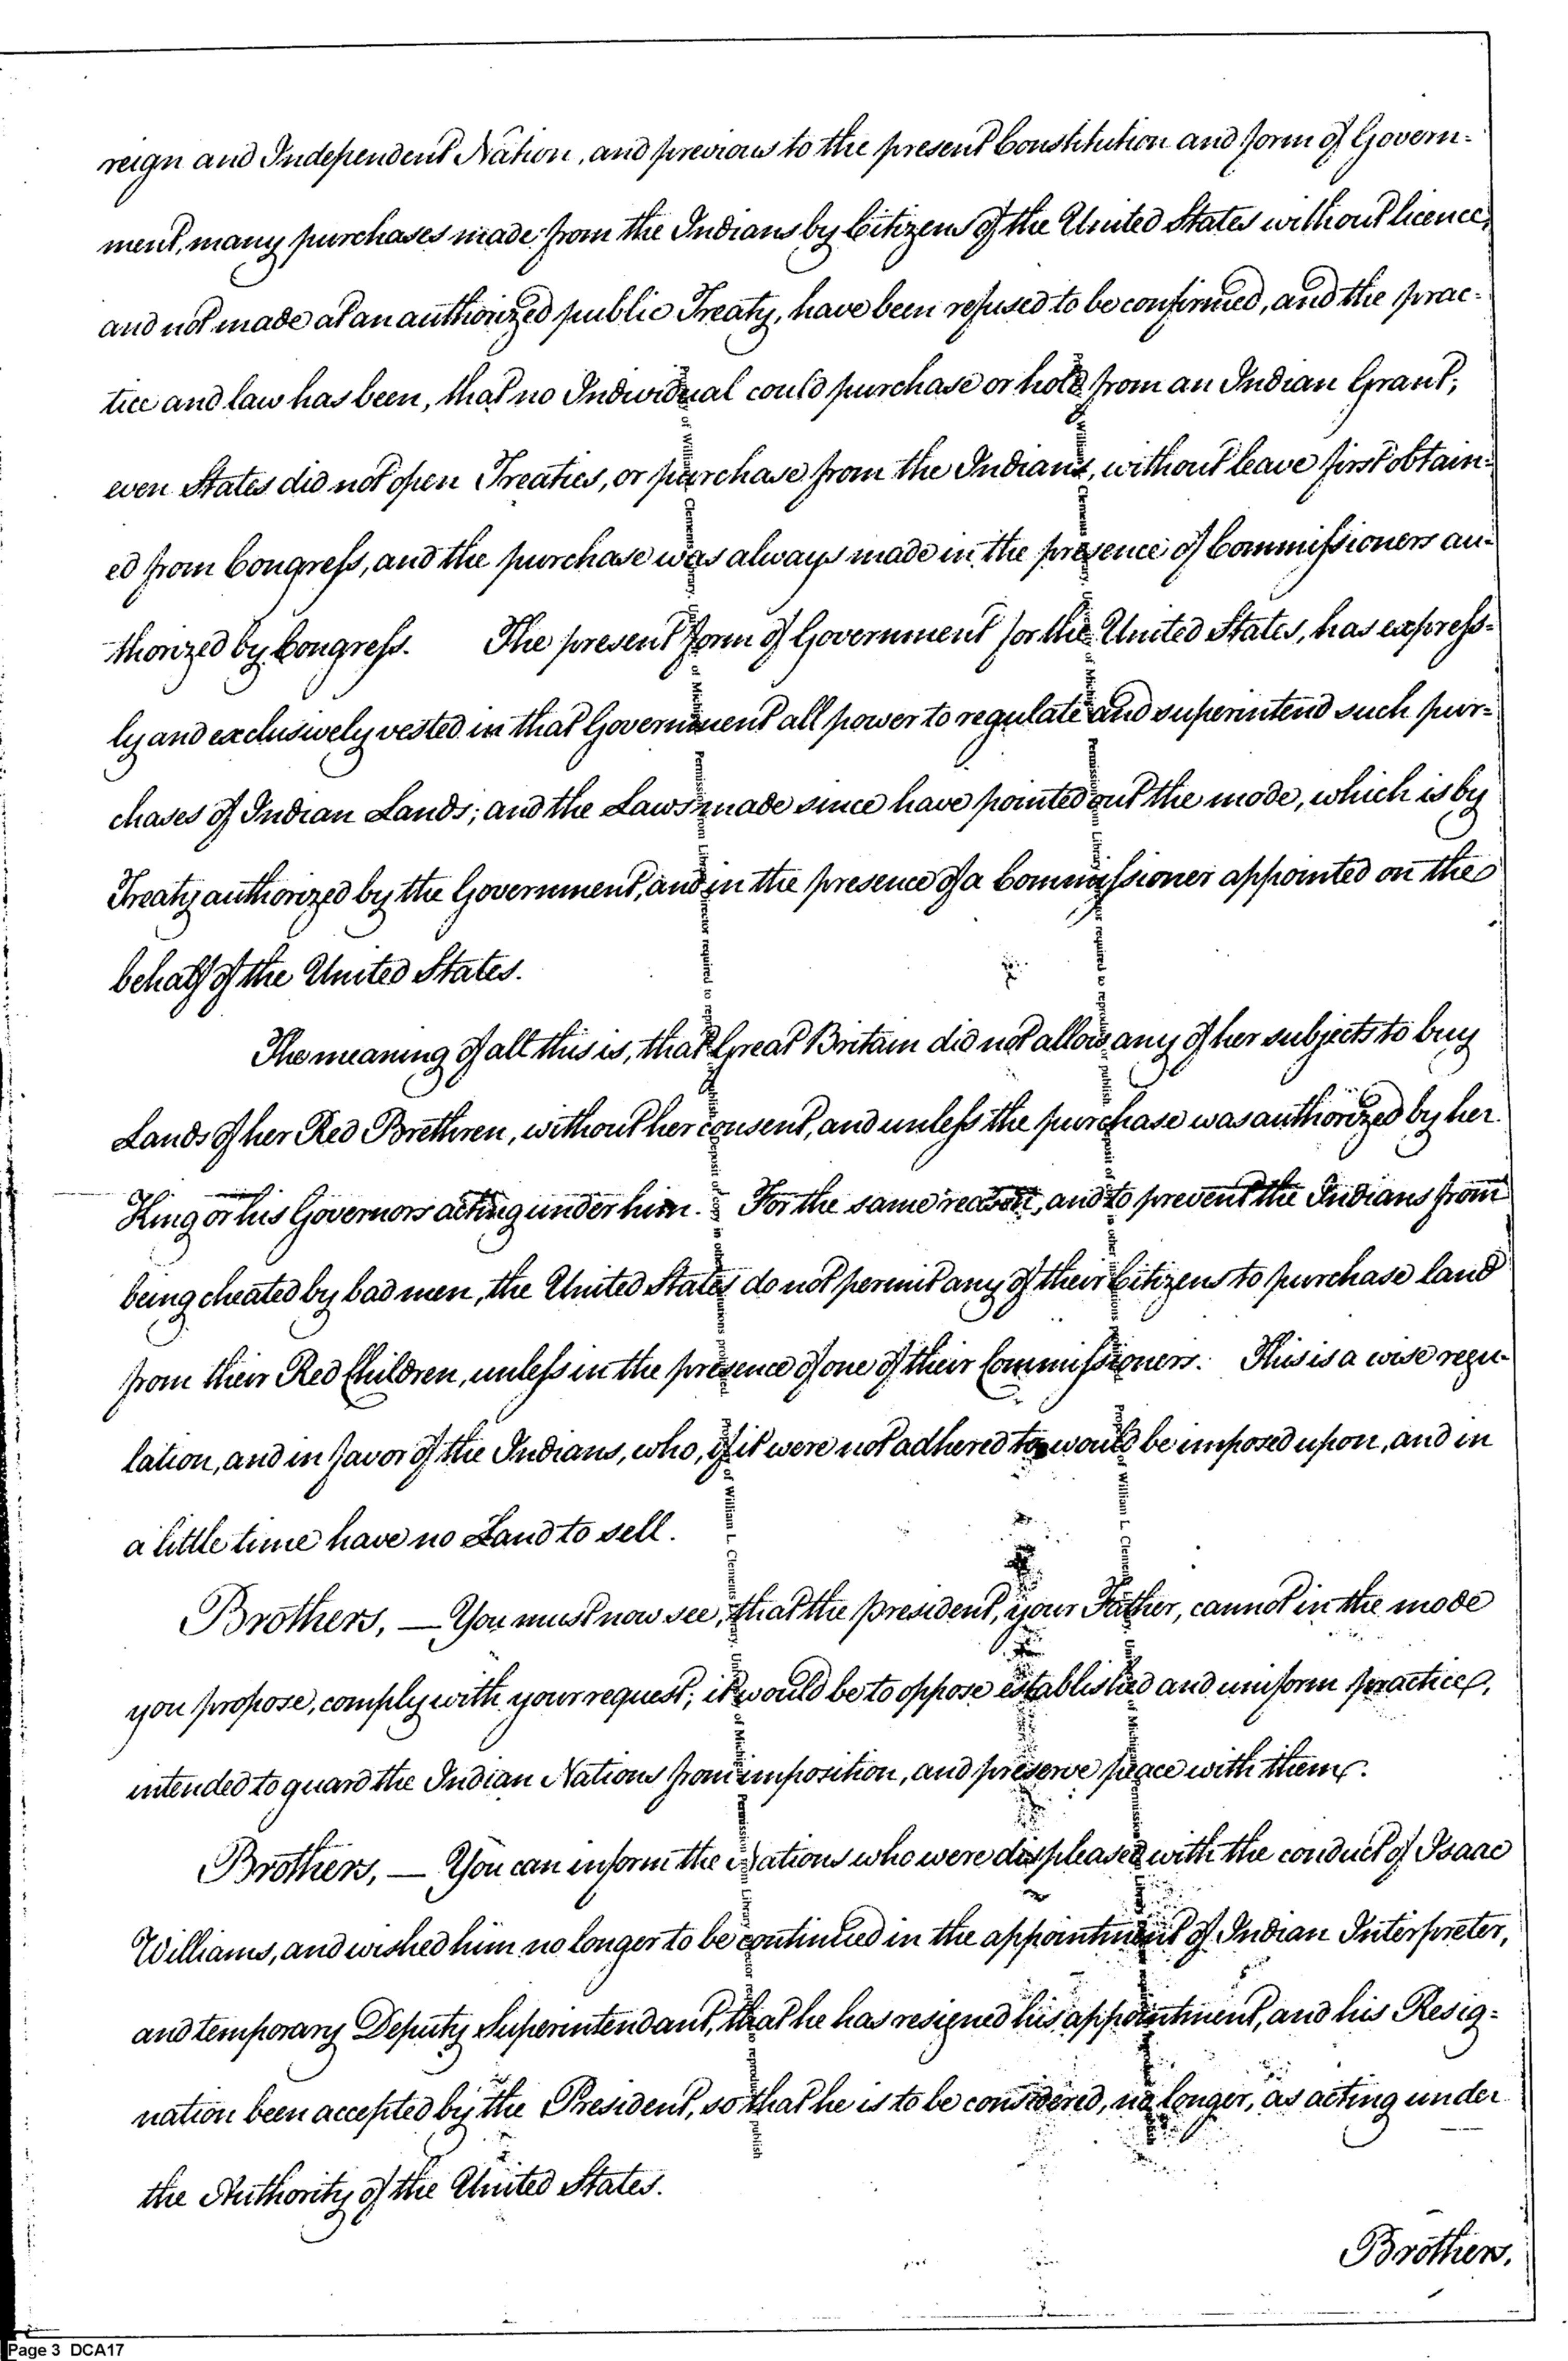 reign and Independent Nation, and previous to the present Constitution and form of Govern=
ment, many purchases made from the Indians by Citizens of the United States without licence,
and not made at an authorized public Treaty, have been refused to be confirmed, and the prac=
tice and law has been, that no Individual could purchase or hold from an Indian Grant;
even States did not open Treaties, or purchase from the Indians, without leave first obtain=
ed from Congress, and the purchase was always made in the presence of Commissioners au=
thorized by Congress. The present form of Government for the United States, has express=
ly and exclusively vested in that Government all power to regulate and superintend such pur=
chases of Indian Lands; and the Laws made since have pointed out the mode, which is by
Treaty authorized by the Government, and in the presence of a Commissioner appointed on the
behalf of the United States.
The meaning of all this is, that Great Britain did not allow any of her subjects to buy
Lands of her Red Brethren, without her consent, and unless the purchase was authorized by her
King or his Governors acting under him. For the same reason, and to prevent the Indians from
being cheated by bad men, the United States do not permit any of their Citizens to purchase land
from their Red Children, unless in the presence of one of their Commissioners. This is a wise regu-
lation, and in favor of the Indians, who, if it were not adhered to, would be imposed upon, and in
a little time have no Land to sell.
Brothers, — You must now see, that the president, your Father, cannot in the mode
you propose, comply with your request; it would be to oppose established and uniform practice,
intended to guard the Indian Nations from imposition, and preserve peace with them.
Brothers, — You can inform the Nations who were displeased with the conduct of Isaac
Williams, and wished him no longer to be continued in the appointment of Indian Interpreter,
and temporary Deputy Superintendant, that he has resigned his appointment, and his Resig=
nation been accepted by the President, so that he is to be considered, no longer, as acting under
the Authority of the United States.
Brothers,
Page 3 DCA17